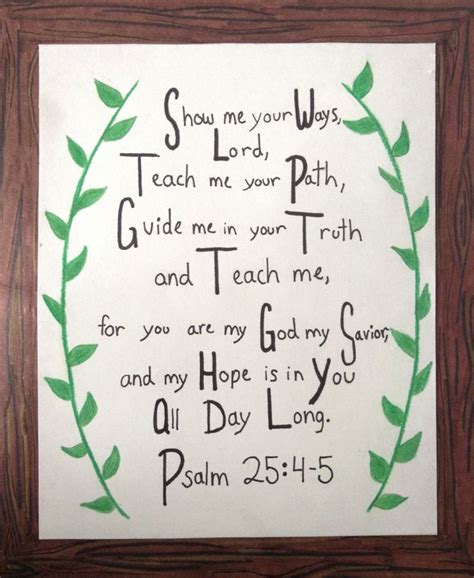 Show me your Ways,
Lord,
Teach me your Path,
Guide me in your Truth
and Teach me,
for you are my God my Savior,
and my Hope is in You
all Day Long.
Psalm 25:4-5